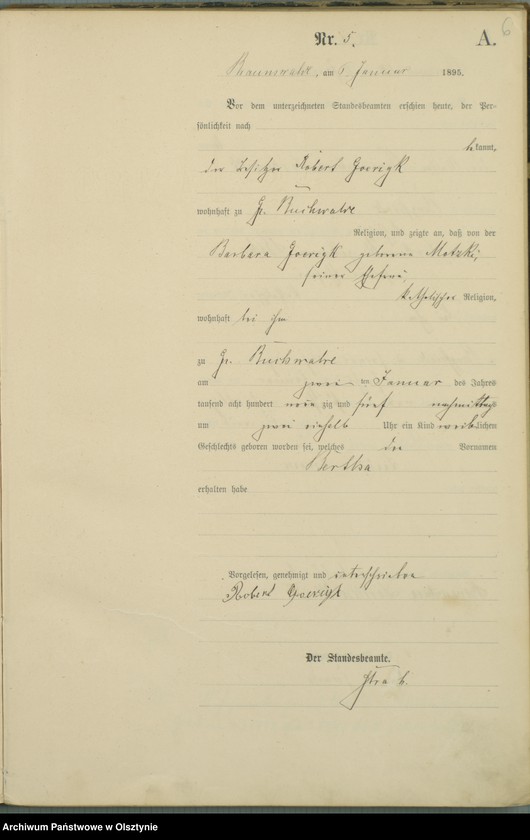 6
Nr. 5. A.
Braunswalde, am 5 Januar 1895.
Vor dem unterzeichneten Standesbeamten erschien heute, der Per-
sönlichkeit nach
bekannt,
der Besitzer Robert Goerigk
wohnhaft zu Gr. Buchwalde
Religion, und zeigte an, daß von der
Barbara Goerigk geborene Matzki,
seiner Ehefrau,
katholischer Religion,
wohnhaft bei ihm
zu Gr. Buchwalde
am zwei ten Januar des Jahres
tausend acht hundert neun zig und fünf nachmittags
um zwei einhalb Uhr ein Kind weiblichen
Geschlechts geboren worden sei, welches den Vornamen
Bertha
erhalten habe
Vorgelesen, genehmigt und unterschrieben
Robert Goerigk
Der Standesbeamte.
Archiwum Państwowe w Olsztynie